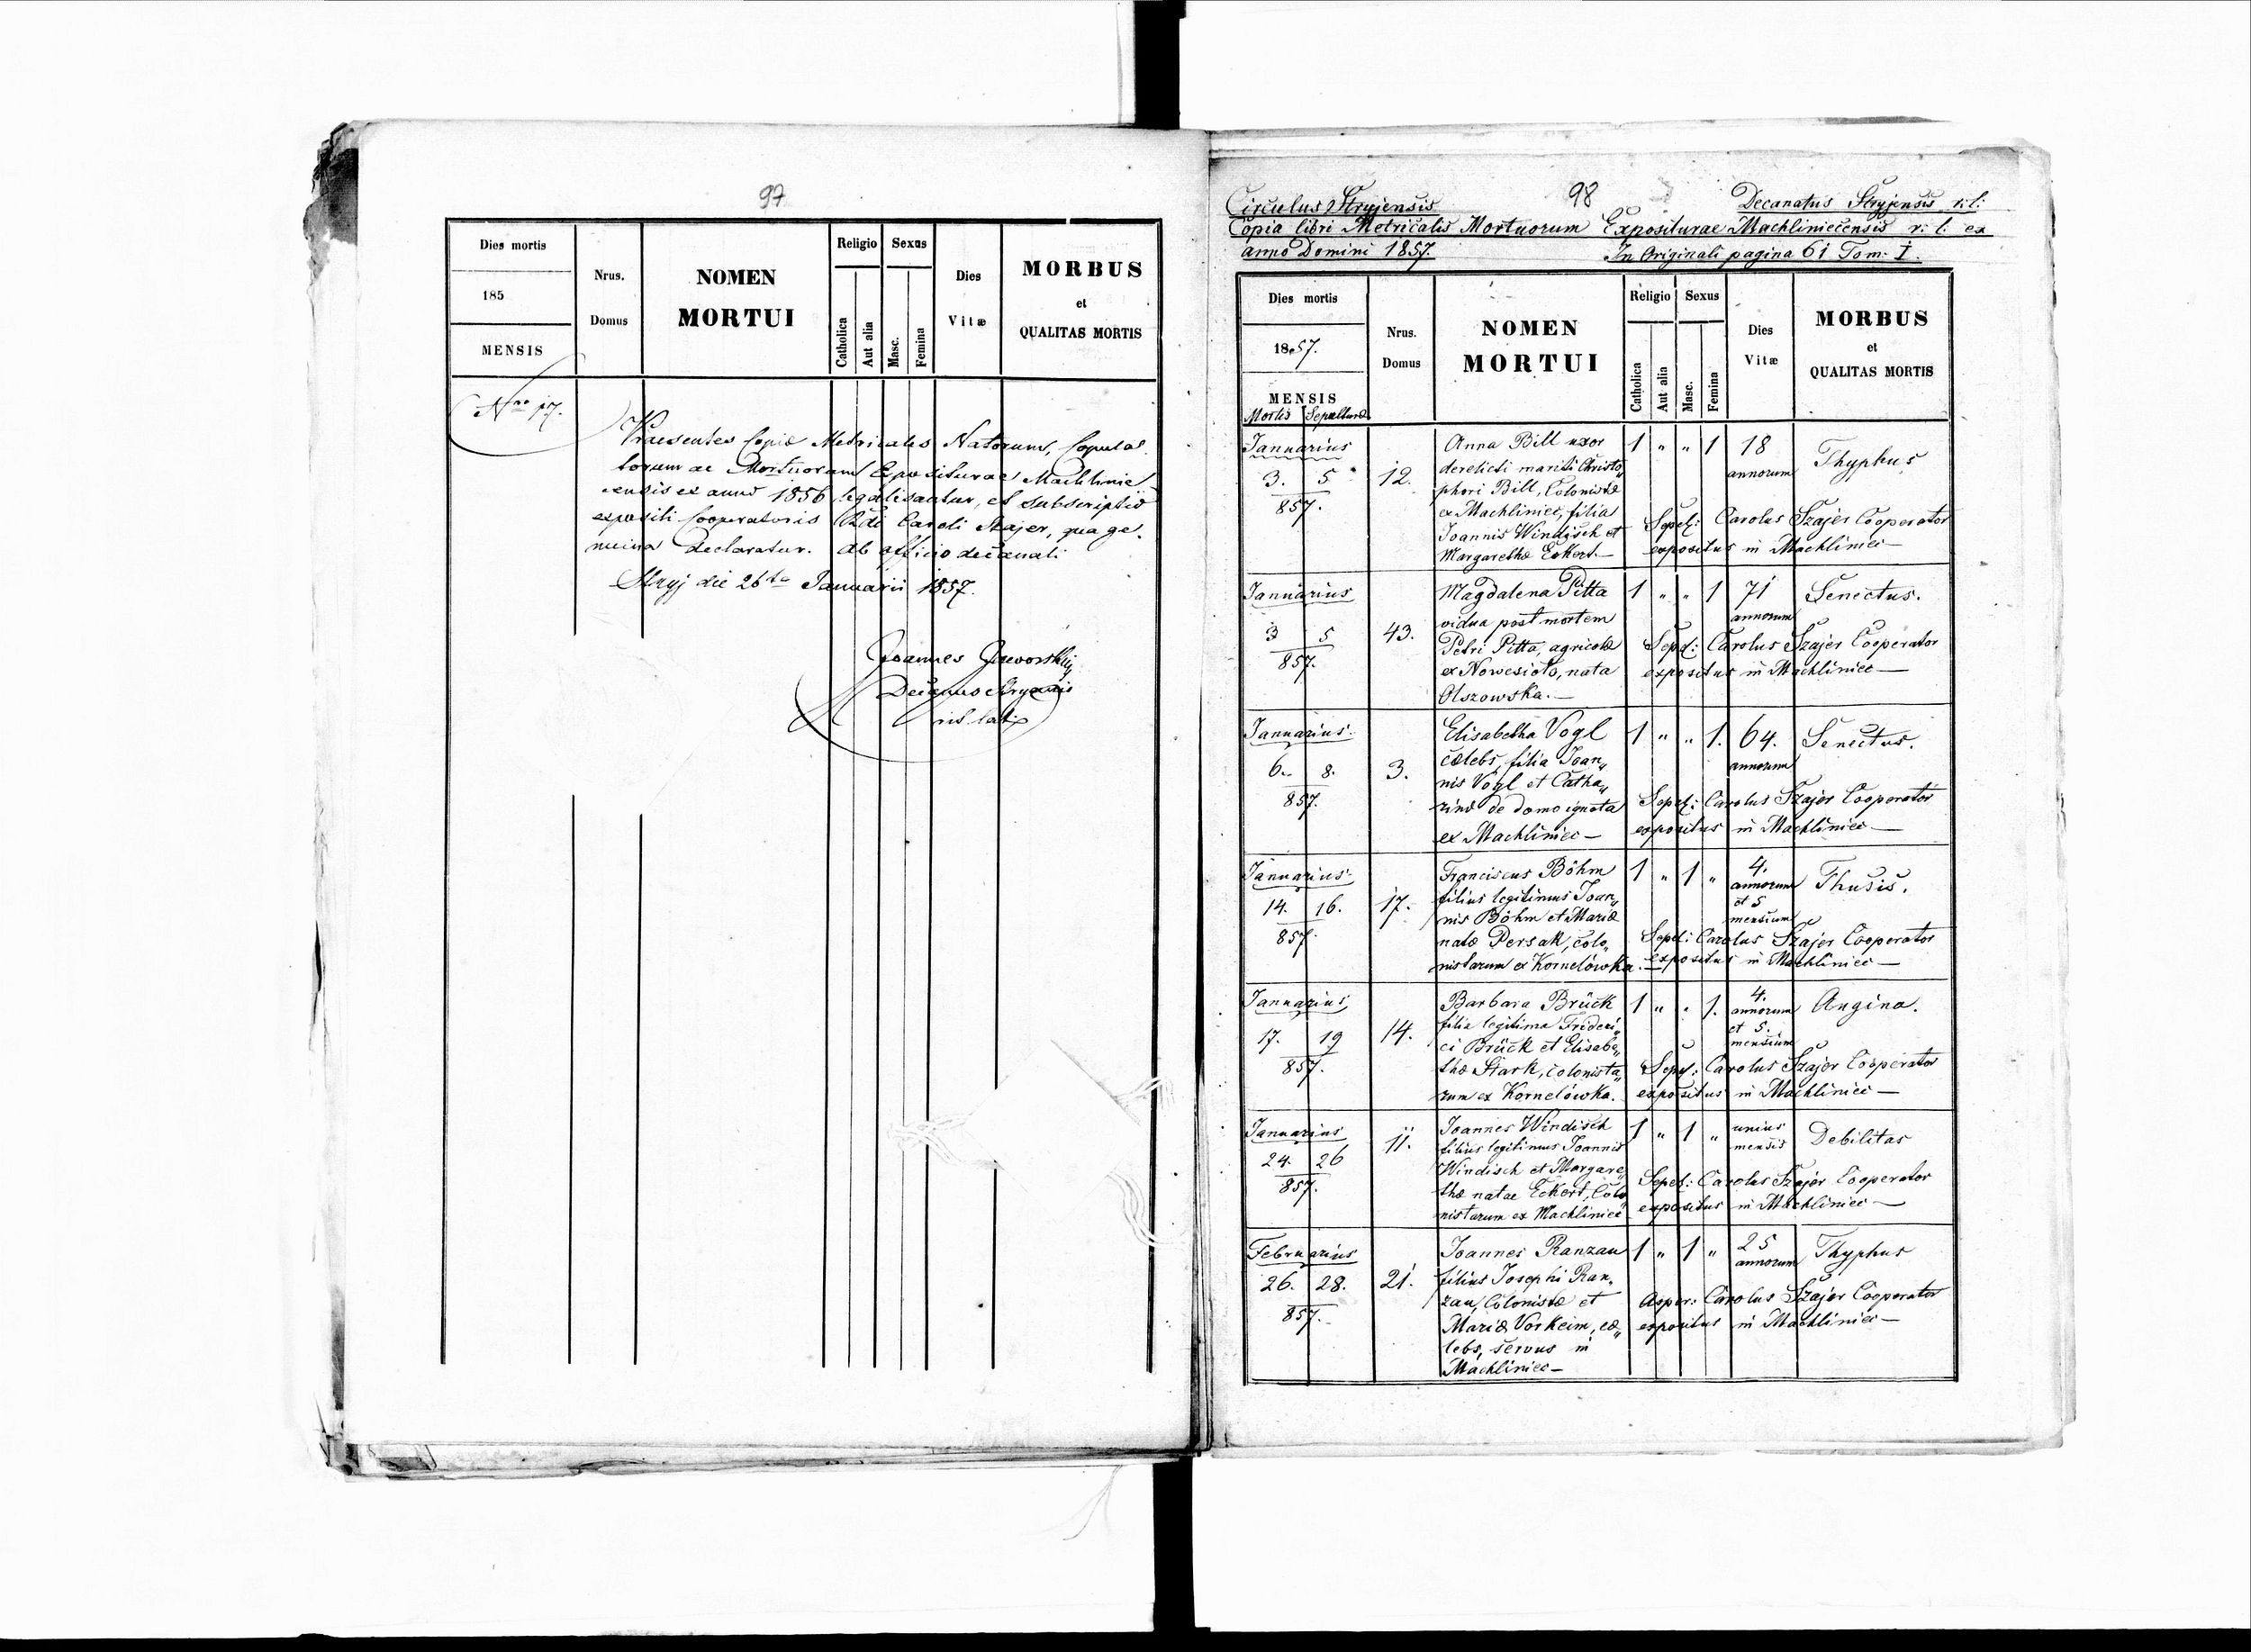 97
Dies mortis
185
MENSIS
Nrus.
Domus
NOMEN
MORTUI
Religio
Catholica
Aut alia
Sexus
Masc.
Femina
Dies
Vitæ
MORBUS
et
QUALITAS MORTIS
Nro 17.
Praesentes Copiæ Metricales Natorum, Copula-
torum ac Mortuorum Expositurae Machlinie-
censis ex anno 1856 legalisantur, et subscriptio
expositi Cooperatoris Rdi Caroli Szajer, qua ge-
nuina declaratur. Ab officio decanali
Stryj die 26ta Januarii 1857.
Joannes Jaworski
Decanus Stryensis
rit. lat.
98
Circulus Stryjensis
Decanatus Stryjensis r: l:
Copia libri Metricalis Mortuorum Expositurae Machliniecensis r: l: ex
anno Domini 1857.
In Originali pagina 61 Tom: I.
Dies mortis
1857.
MENSIS
Mortis Sepulturæ
Nrus.
Domus
NOMEN
MORTUI
Religio
Catholica
Aut alia
Sexus
Masc.
Femina
Dies
Vitæ
MORBUS
et
QUALITAS MORTIS
Januarius
3. 5
857.
12.
Anna Bill uxor
derelicti mariti Christo„
phori Bill, Colonistæ
ex Machliniec, filia
Joannis Windisch et
Margarethæ Eckert.—
1 „ „ 1
18
annorum
Thyphus
Sepel: Carolus Szajer Cooperator
expositus in Machliniec—
Januarius
3 5
857.
43.
Magdalena Pitta
vidua post mortem
Petri Pitta, agricolæ
ex Nowesioło, nata
Olszowska.—
1 „ „ 1
71
annorum
Senectus.
Sepel: Carolus Szajer Cooperator
expositus in Machliniec—
Januarius.
6. 8.
857.
3.
Elisabetha Vogl
cælebs, filia Joan„
nis Vogl et Catha„
rinæ de domo ignota
ex Machliniec—
1 „ „ 1.
64.
annorum
Senectus.
Sepel: Carolus Szajer Cooperator
expositus in Machliniec—
Januarius.
14. 16.
857.
17.
Franciscus Böhm
filius legitimus Joan„
nis Böhm et Mariæ
natæ Persak, colo„
nistarum ex Kornelówka.
1 „ 1 „
4.
annorum
et 5
mensium
Thusis.
Sepel: Carolus Szajer Cooperator
expositus in Machliniec—
Januarius
17. 19
857.
14.
Barbara Brück
filia legitima Frideri„
ci Brück et Elisabe„
thæ Stark, colonista„
rum ex Kornelówka.
1 „ „ 1.
4.
annorum
et 5.
mensium
Angina.
Sepel: Carolus Szajer Cooperator
expositus in Machliniec—
Januarius
24. 26
857.
11.
Joannes Windisch
filius legitimus Joannis
Windisch et Margare„
thæ natae Eckert, Colo„
nistarum ex Machliniec
1 „ 1 „
unius
mensis
Debilitas
Sepel: Carolus Szajer Cooperator
expositus in Machliniec—
Februarius
26. 28.
857.
21.
Joannes Ranzau
filius Josephi Ran„
zau, Colonistæ et
Mariæ Vorkeim, cæ„
lebs, servus in
Machliniec—
1 „ 1 „
25
annorum
Thyphus
Asper: Carolus Szajer Cooperator
expositus in Machliniec—